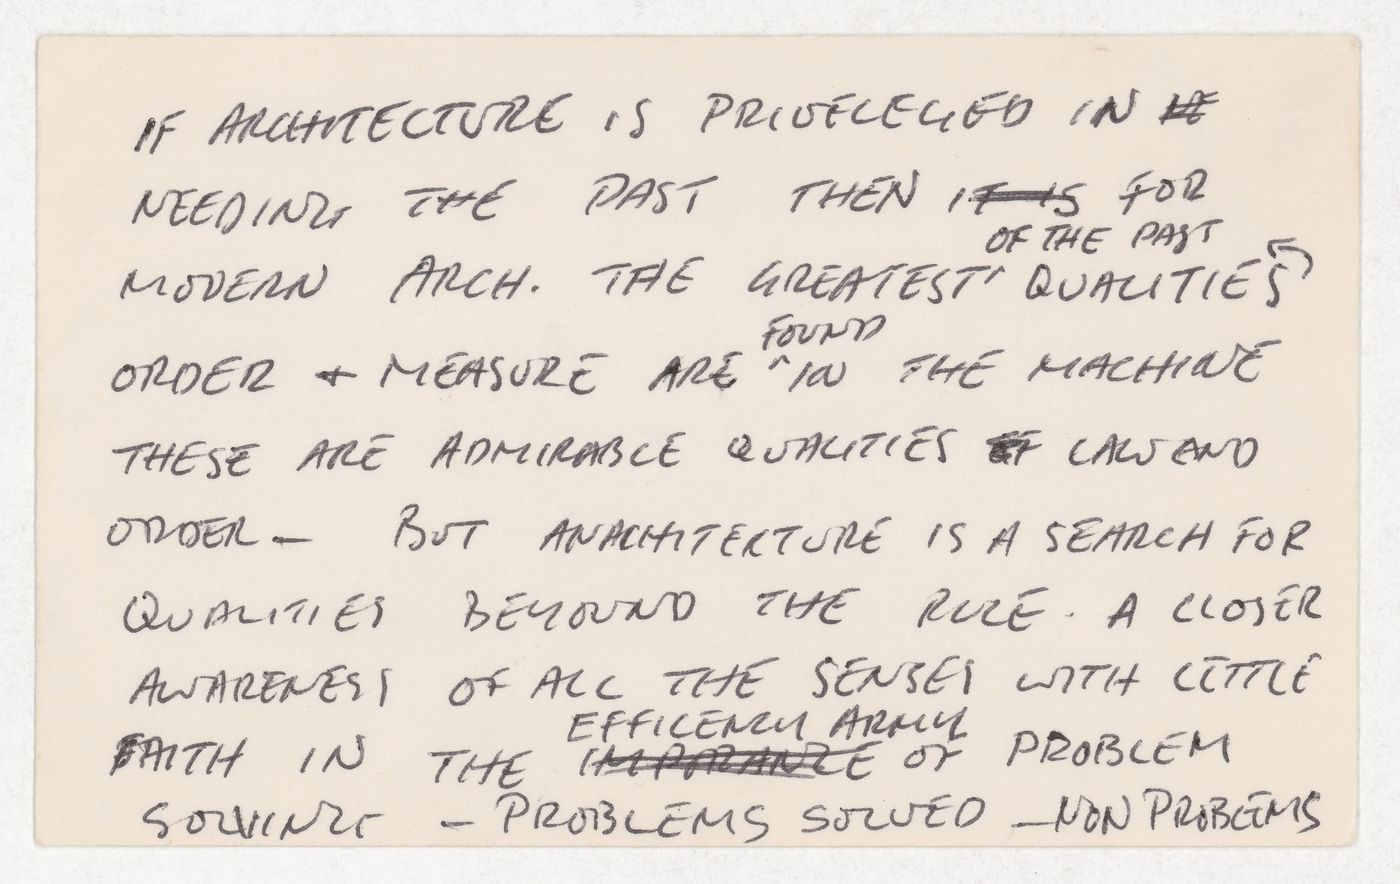 IF ARCHITECTURE IS PRIVELEGED IN
NEEDING THE PAST THEN IT IS FOR
OF THE PAST
MODERN ARCH. THE GREATEST QUALITIES
FOUND
ORDER + MEASURE ARE ^ IN THE MACHINE
THESE ARE ADMIRABLE QUALITIES OF LAW AND
ORDER – BUT ANARCHITEKTURE IS A SEARCH FOR
QUALITIES BEYOUND THE RULE. A CLOSER
AWARENESS OF ALL THE SENSES WITH LITTLE
EFFICENCY ARMY
FAITH IN THE IMPORANCE OF PROBLEM
SOLVING – PROBLEMS SOLVED – NON PROBEMS